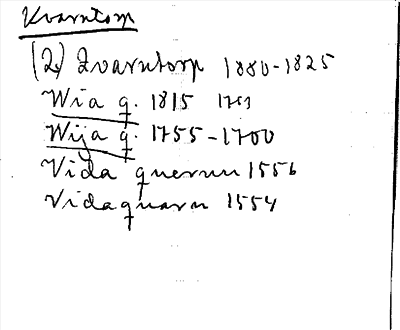 Kvarntorp
(2) Qvarntorp 1880-1825
Wia q. 1815 1759
Wija q. 1755-1700
Vida quernn 1556
Vidaquarn 1554